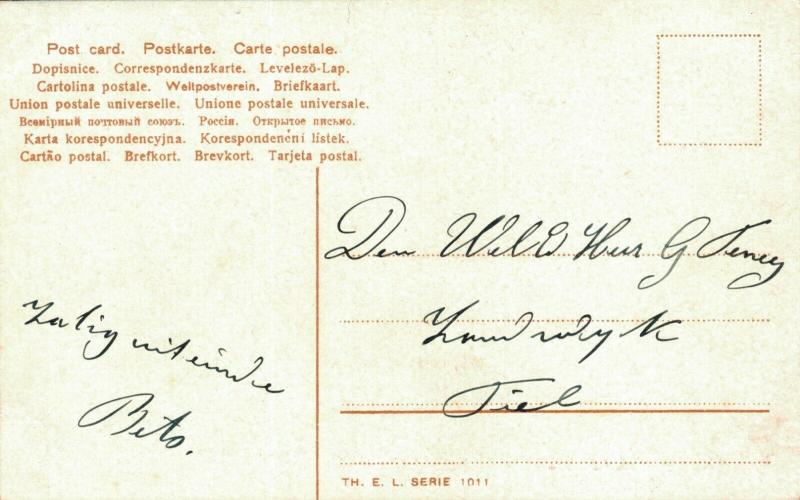 Post card. Postkarte. Carte postale.
Dopisnice. Correspondenzkarte. Levelező-Lap.
Cartolina postale. Weltpostverein. Briefkaart.
Union postale universelle. Unione postale universale.
Всемірный почтовый союзъ. Россія. Открытое письмо.
Karta korespondencyjna. Korespondenční lístek.
Cartão postal. Brefkort. Brevkort. Tarjeta postal.
Zalig uiteinde
Beto.
Den Wel E Heer G
Zandwyk
Tiel
TH. E. L. SERIE 1011